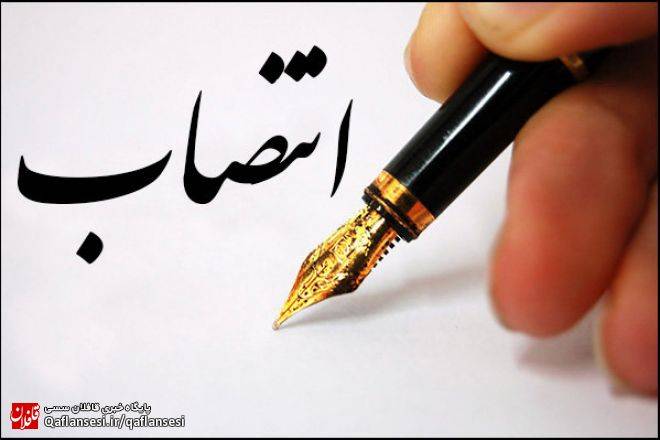 انتصاب
پایگاه خبری قافلان سسی
Qaflansesi.ir/qaflansesi
قافلان